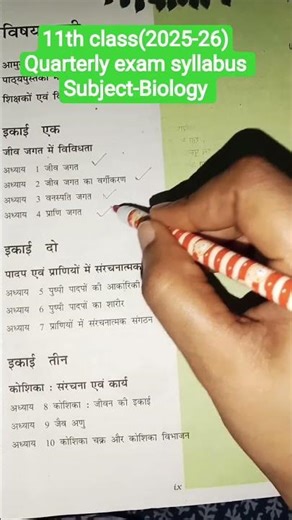 11th class(2025-26)
Quarterly exam syllabus
Subject-Biology
इकाई एक
जीव जगत में विविधता
अध्याय 1 जीव जगत
अध्याय 2 जीव जगत का वर्गीकरण
अध्याय 3 वनस्पति जगत
अध्याय 4 प्राणि जगत
इकाई दो
पादप एवं प्राणियों में संरचनात्मक
अध्याय 5 पुष्पी पादपों की आकारिकी
अध्याय 6 पुष्पी पादपों का शारीर
अध्याय 7 प्राणियों में संरचनात्मक संगठन
इकाई तीन
कोशिका : संरचना एवं कार्य
अध्याय 8 कोशिका : जीवन की इकाई
अध्याय 9 जैव अणु
अध्याय 10 कोशिका चक्र और कोशिका विभाजन
ix